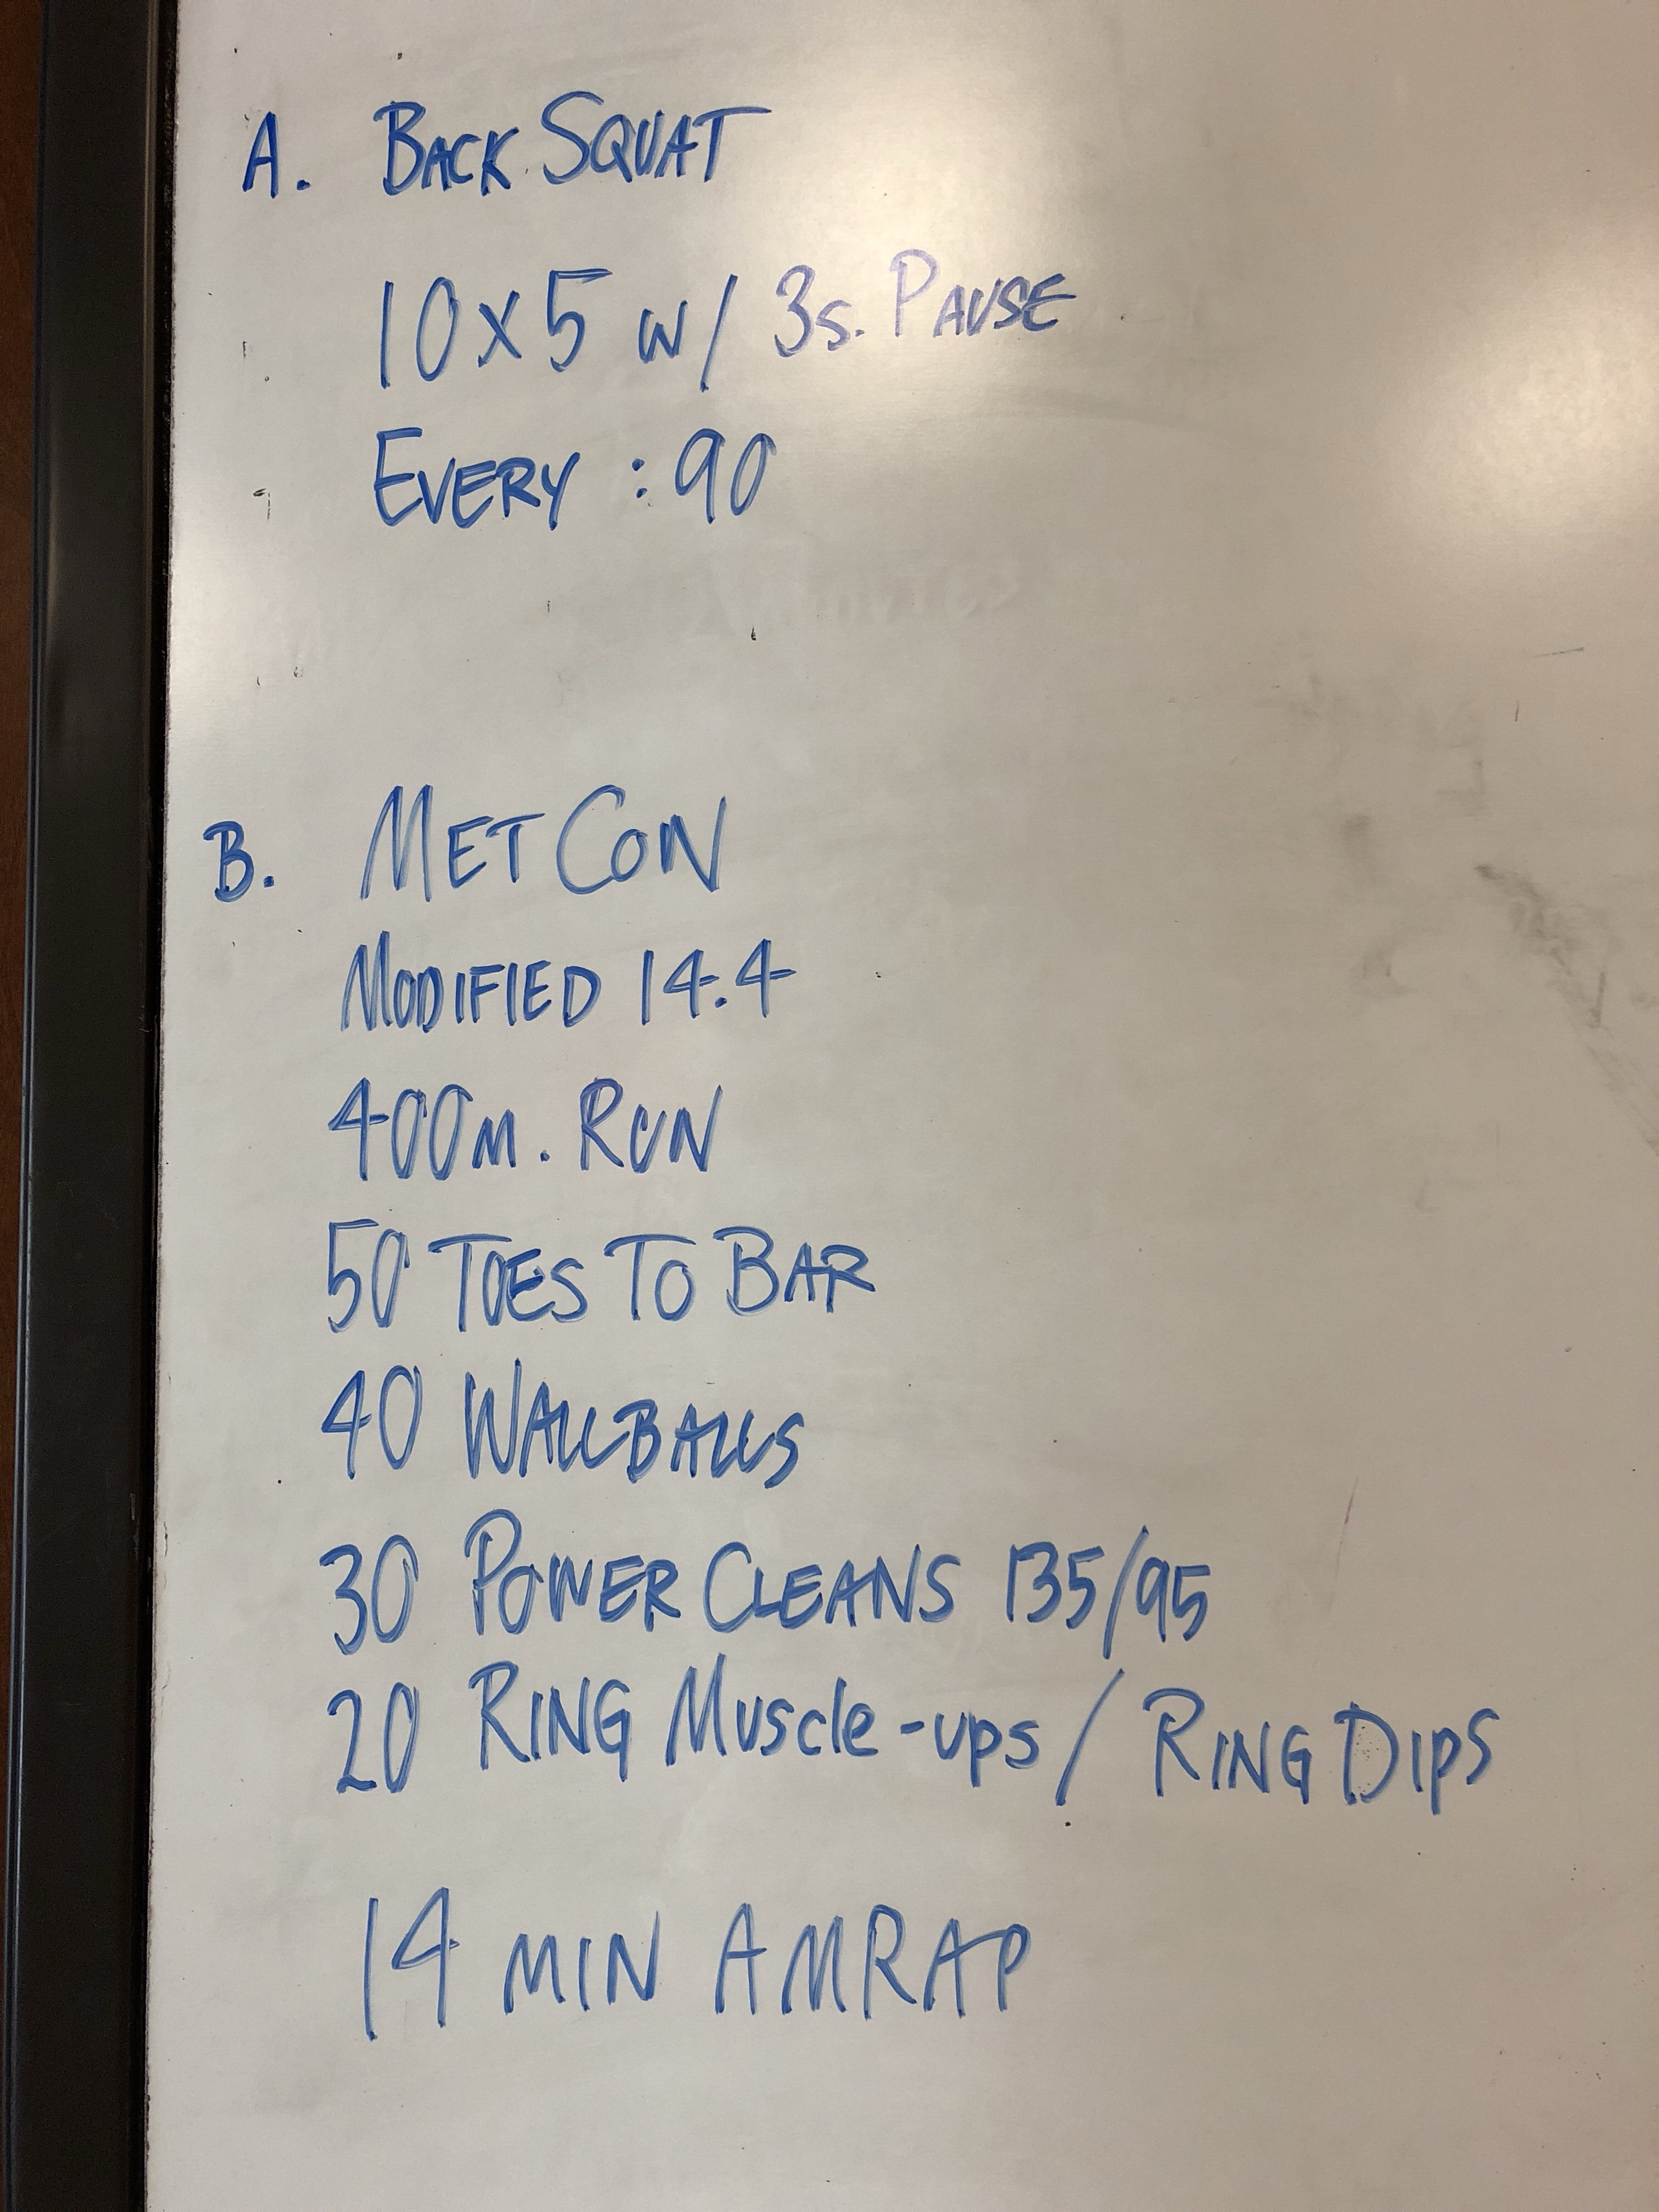 A. BACK SQUAT
10x5 w/ 3s. PAUSE
EVERY :90
B. METCON
MODIFIED 14.4
400m. RUN
50 TOES TO BAR
40 WALLBALLS
30 POWER CLEANS 135/95
20 RING Muscle-ups / RING DIPS
14 MIN AMRAP